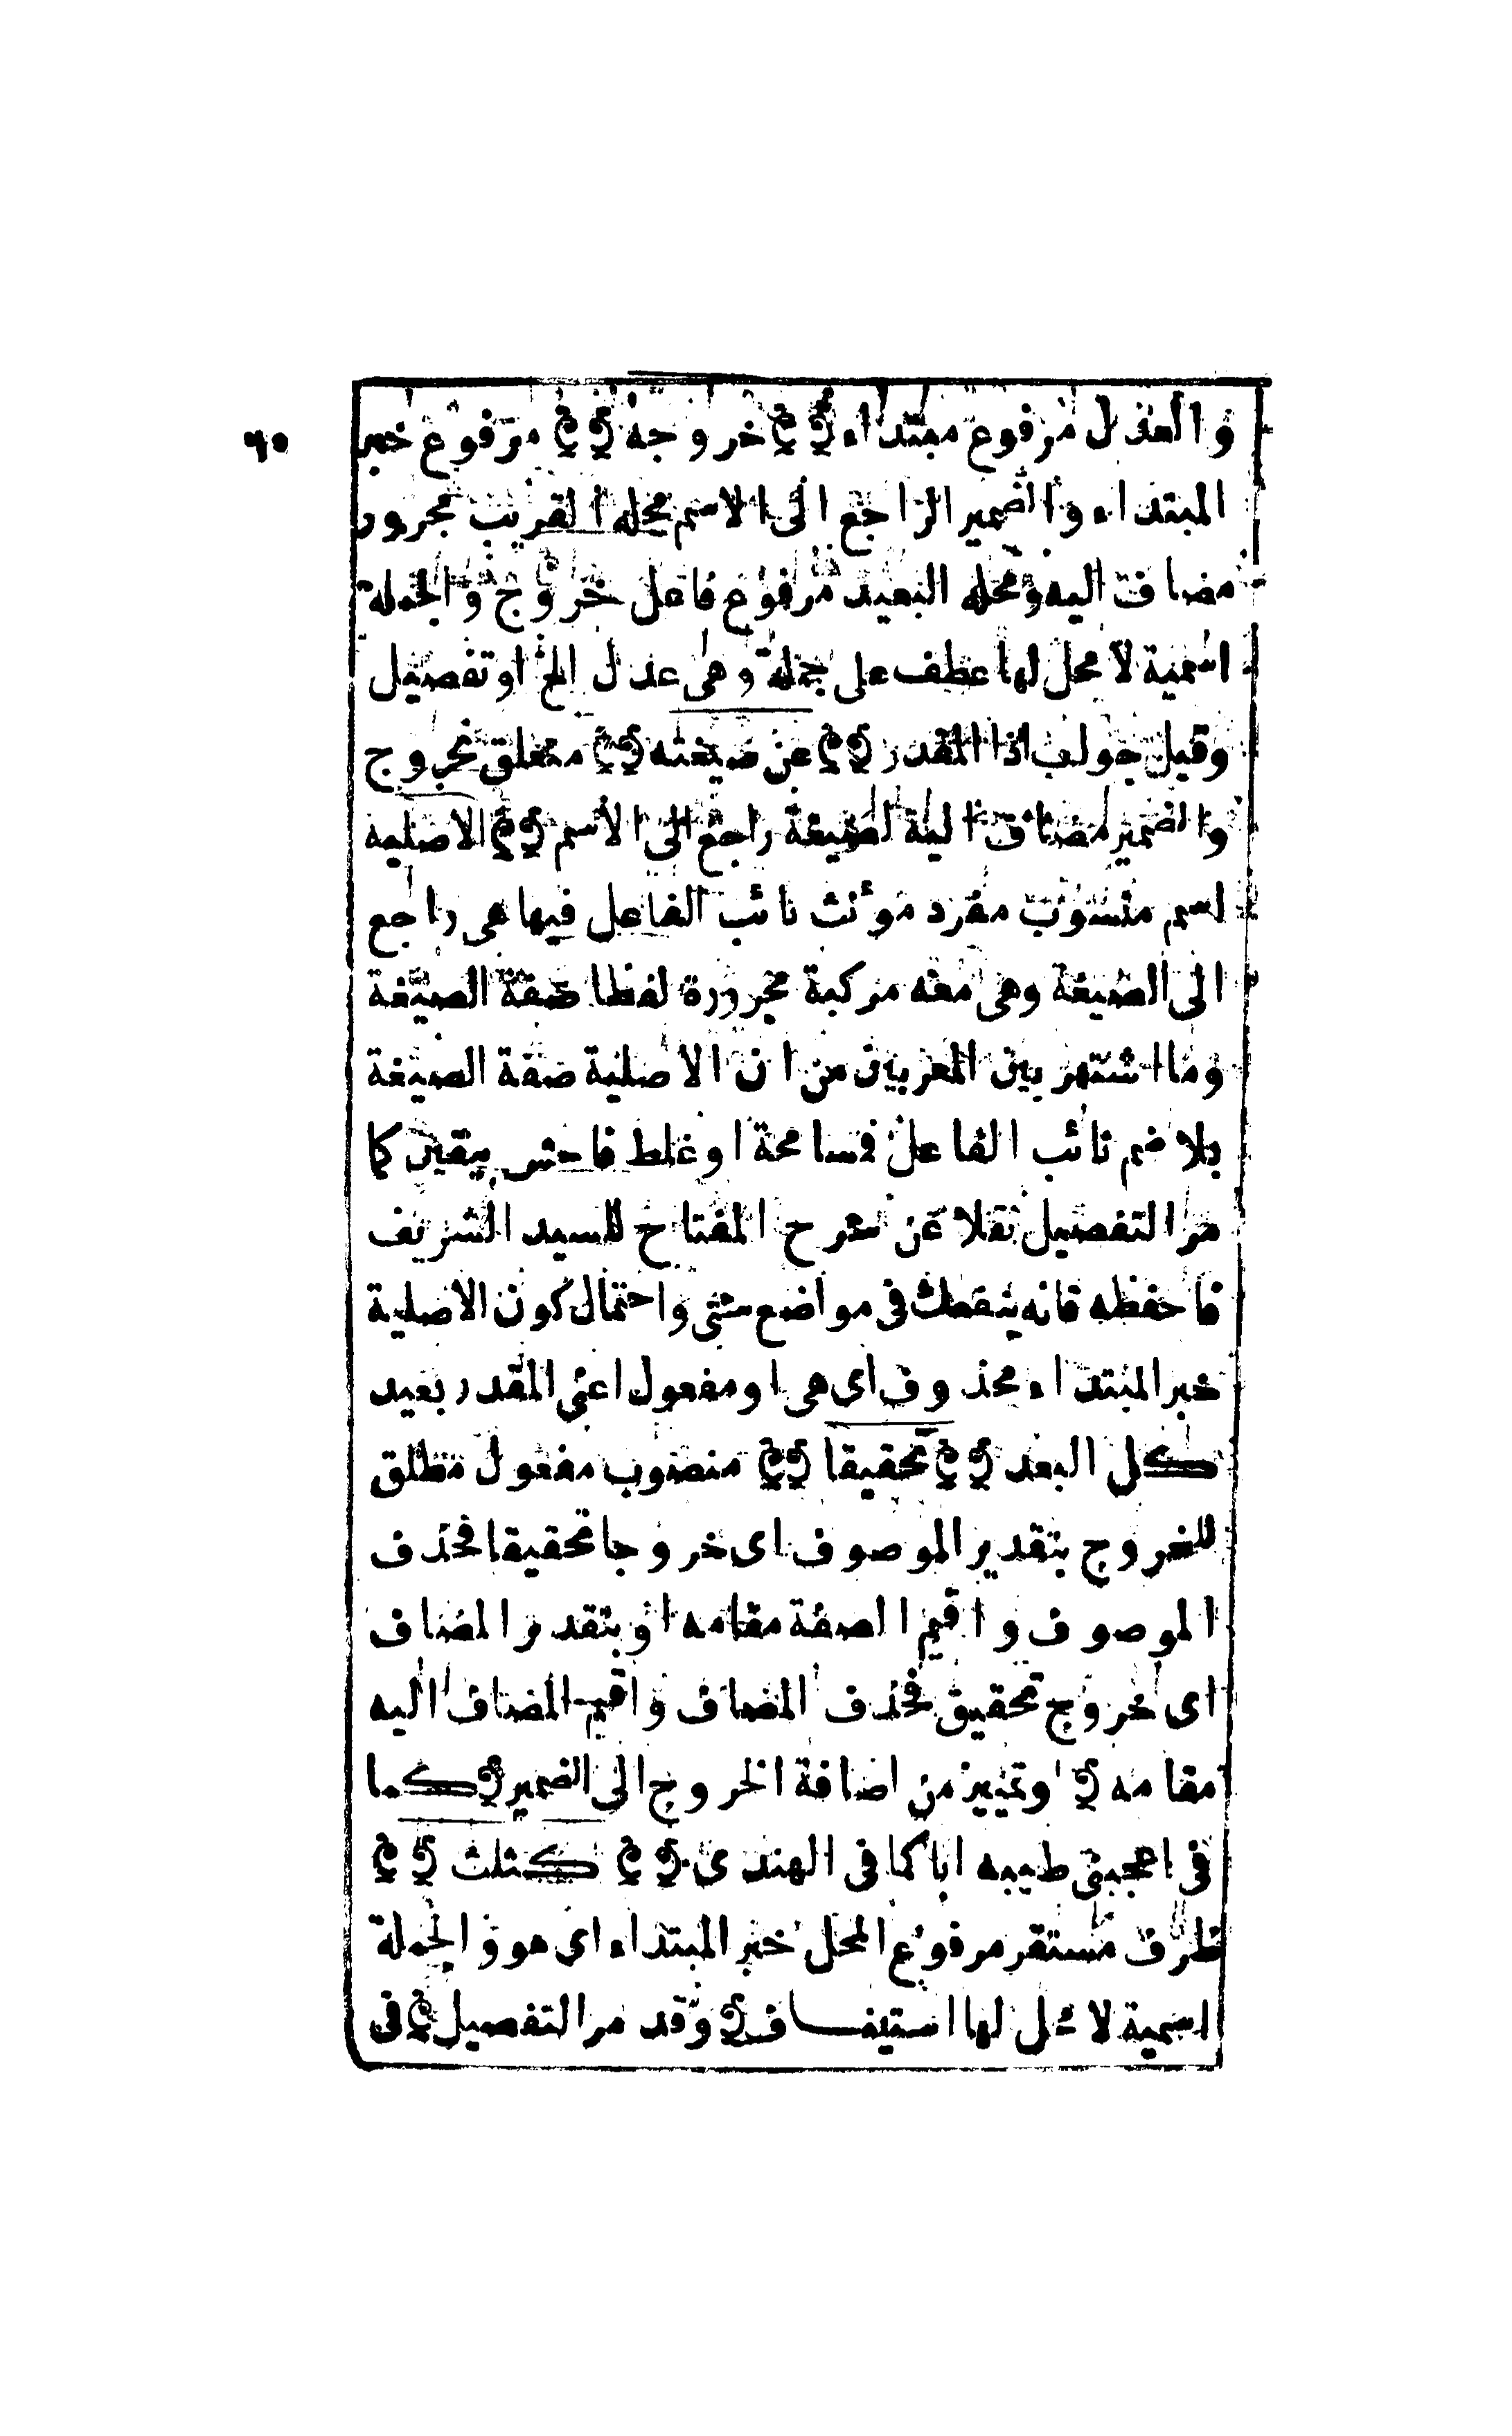 ٦٠
والعدل مرفوع مبتداء ﴿ خروجه ﴾ مرفوع خبر
المبتداء والضمير الراجع الى الاسم محله القريب مجرور
مضاف اليه ومحله البعيد مرفوع فاعل خروج والجملة
اسمية لا محل لها عطف على جملة وهى عدل الخ او تفصيل
وقيل جواب اذا المقدر ﴿ عن صيغته ﴾ متعلق بخروج
والضمير مضاف اليه لصيغة راجع الى الاسم ﴿ الاصلية
اسم منسوب مفرد مؤنث نائب الفاعل فيها هى راجع
الى الصيغة وهى معه مركبة مجرورة لفظا صفة الصيغة
وما اشتهر بين المعربين من ان الاصلية صفة الصيغة
بلا ضم نائب الفاعل فسامحة او غلط فاحش بيقين كما
مر التفصيل نقلا عن شرح المفتاح للسيد الشريف
فاحفظه فانه ينفعك فى مواضع شتى واحتمال كون الاصلية
خبر المبتداء محذوف اى هى او مفعول اعنى المقدر بعيد
كل البعد ﴿ تحقيقا ﴾ منصوب مفعول مطلق
للخروج بتقدير الموصوف اى خروجا تحقيقا فحذف
الموصوف واقيم الصفة مقامه او بتقدير المضاف
اى خروج تحقيق فحذف المضاف واقيم المضاف اليه
مقامه ﴿ وتمييز من اضافة الخروج الى الضمير ﴾ كما
فى اعجبنى طيبه ابا كما فى الهندى ﴿ كثلث ﴾
ظرف مستقر مرفوع المحل خبر المبتداء اى هو والجملة
اسمية لا محل لها استيناف ﴿ وقد مر التفصيل ﴾ فى